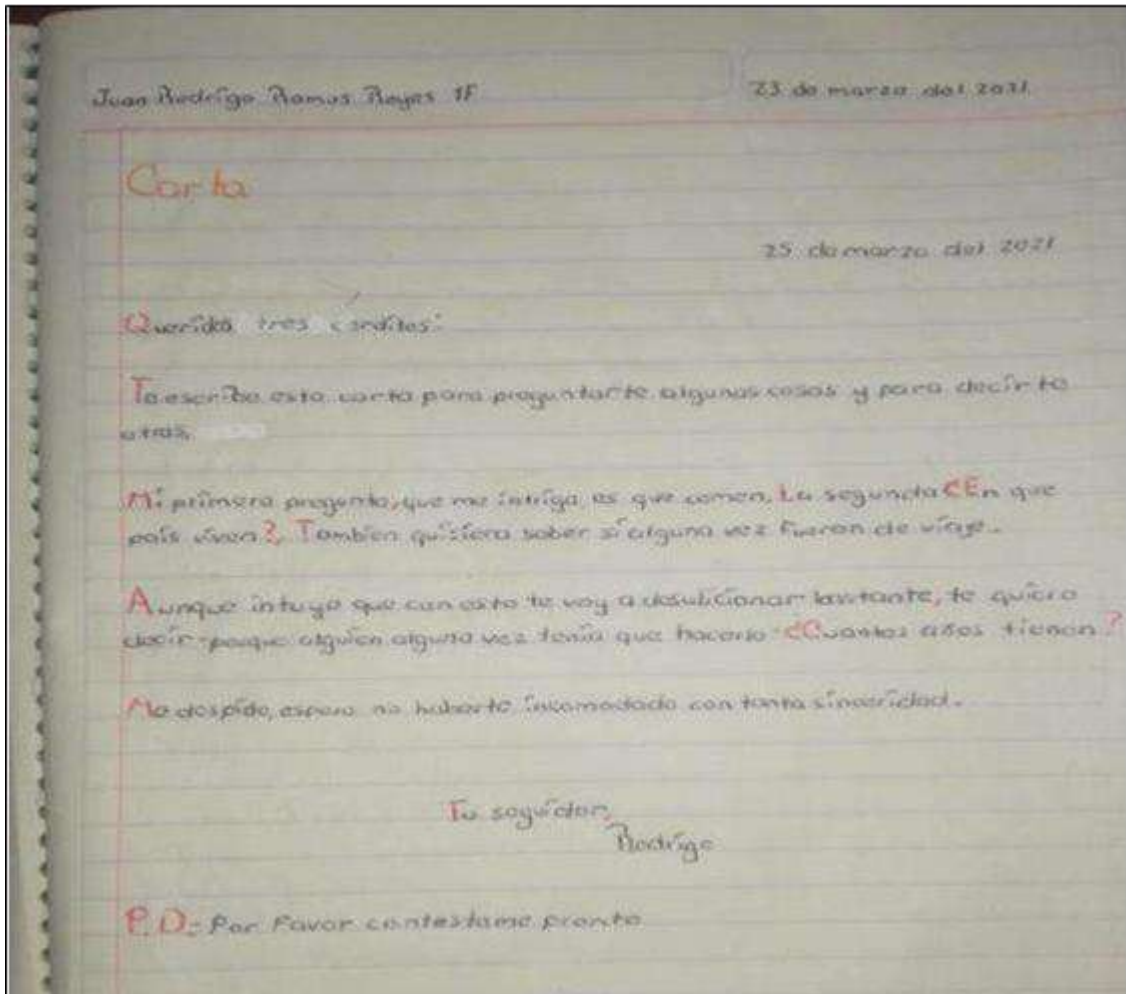 Juan Rodrigo Ramos Reyes 1F
23 de marzo del 2021
Carta
25 de marzo del 2021
Querida tres cerditos:
Te escribo esta carta para preguntarte algunas cosas y para decirte
otras.
Mi primera pregunta, que me intriga es que comen. La segunda ¿En que
país viven?, Tambien quisiera saber si alguna vez fueron de viaje.
Aunque intuyo que con esto te voy a desulicionar bastante, te quiero
decir-porque alguien alguna vez tenía que hacerlo-¿Cuantos años tienen?
Me despido, espero no haberte incomodado con tanta sinceridad.
Tu seguidor,
Rodrigo
P.D= Por Favor contestame pronto